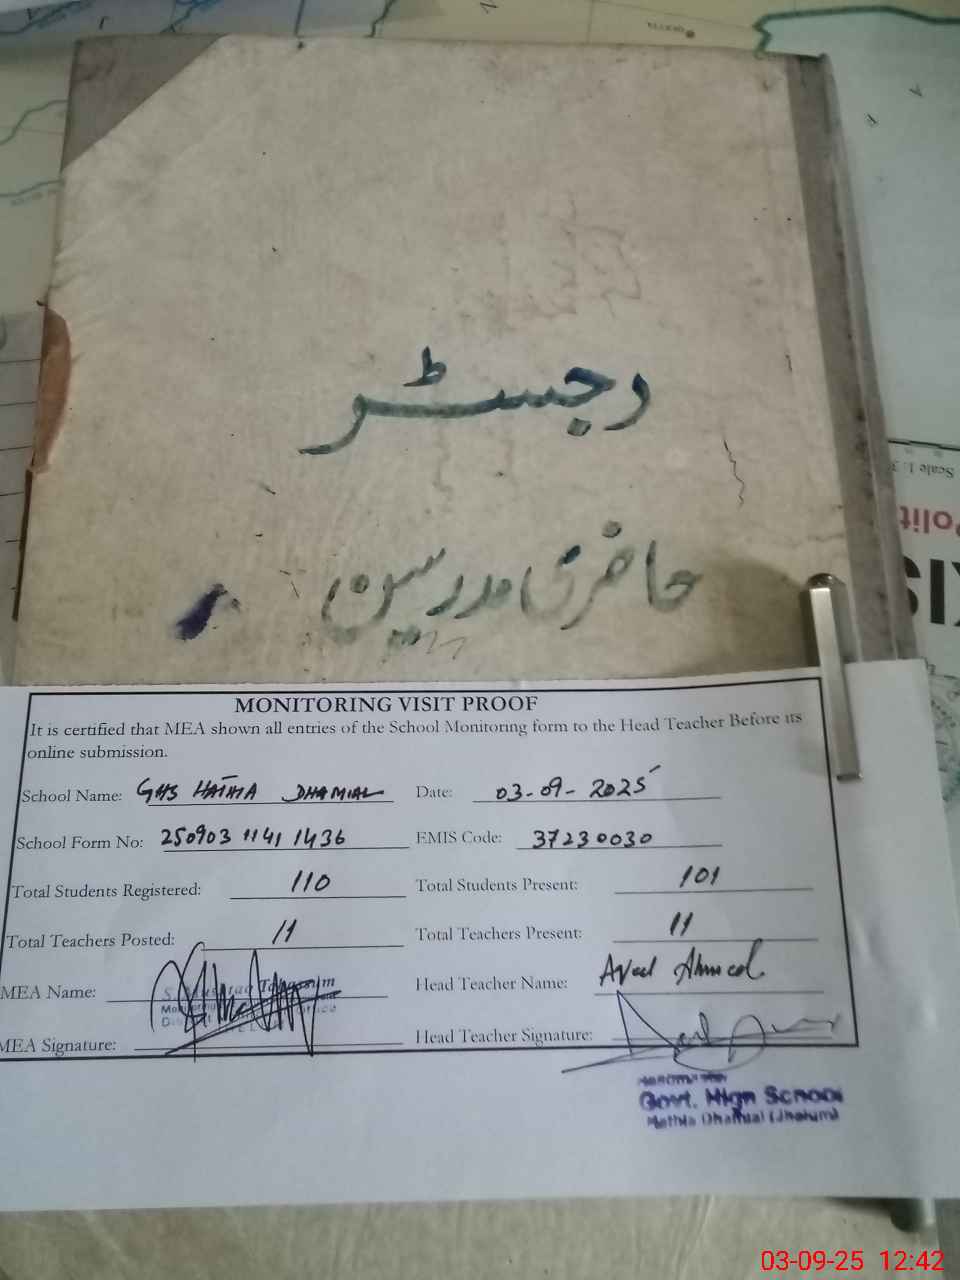 QUETTA
رجسٹر
حاضری مدرسین
Scale 1: 3
Polit
MONITORING VISIT PROOF
It is certified that MEA shown all entries of the School Monitoring form to the Head Teacher Before its
online submission.
School Name: GHS HATHIA DHAMIAL Date: 03-09-2025
School Form No: 250903 1141 1436 EMIS Code: 37230030
Total Students Registered: 110 Total Students Present: 101
Total Teachers Posted: 11 Total Teachers Present: 11
MEA Name: Head Teacher Name: Ahmed
MEA Signature: Head Teacher Signature:
Govt. High School
Hathia Dhamial (Jhelum)
03-09-25 12:42